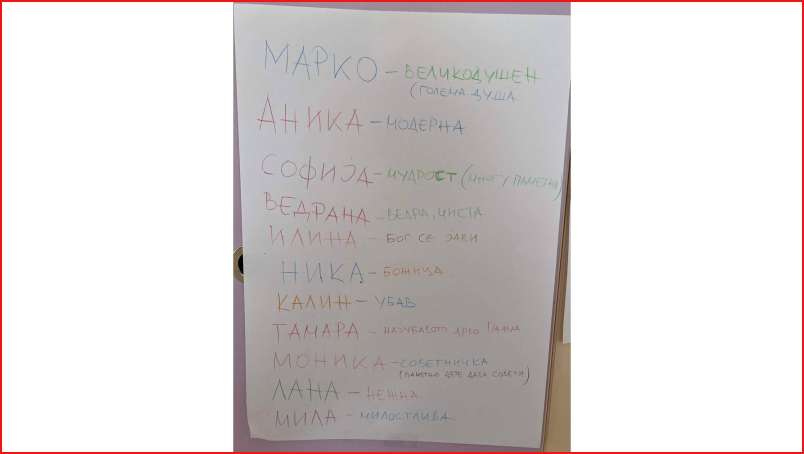 МАРКО – ВЕЛИКОДУШЕН
(ГОЛЕМА ДУША
АНИКА – МОДЕРНА
СОФИЈА – МУДРОСТ (МНОГУ ПАМЕТНА)
ВЕДРАНА – ВЕДРА, ЧИСТА
ИЛИНА – БОГ СЕ ЈАВИ
НИКА – БОЖИЦА
КАЛИН – УБАВ
ТАМАРА – НАЈУБАВОТО ДРВО ПАЛМА
МОНИКА – СОВЕТНИЧКА
(ПАМЕТНО ДЕТЕ ДАВА СОВЕТИ)
ЛАНА – НЕЖНА
МИЛА – МИЛОСТЛИВА